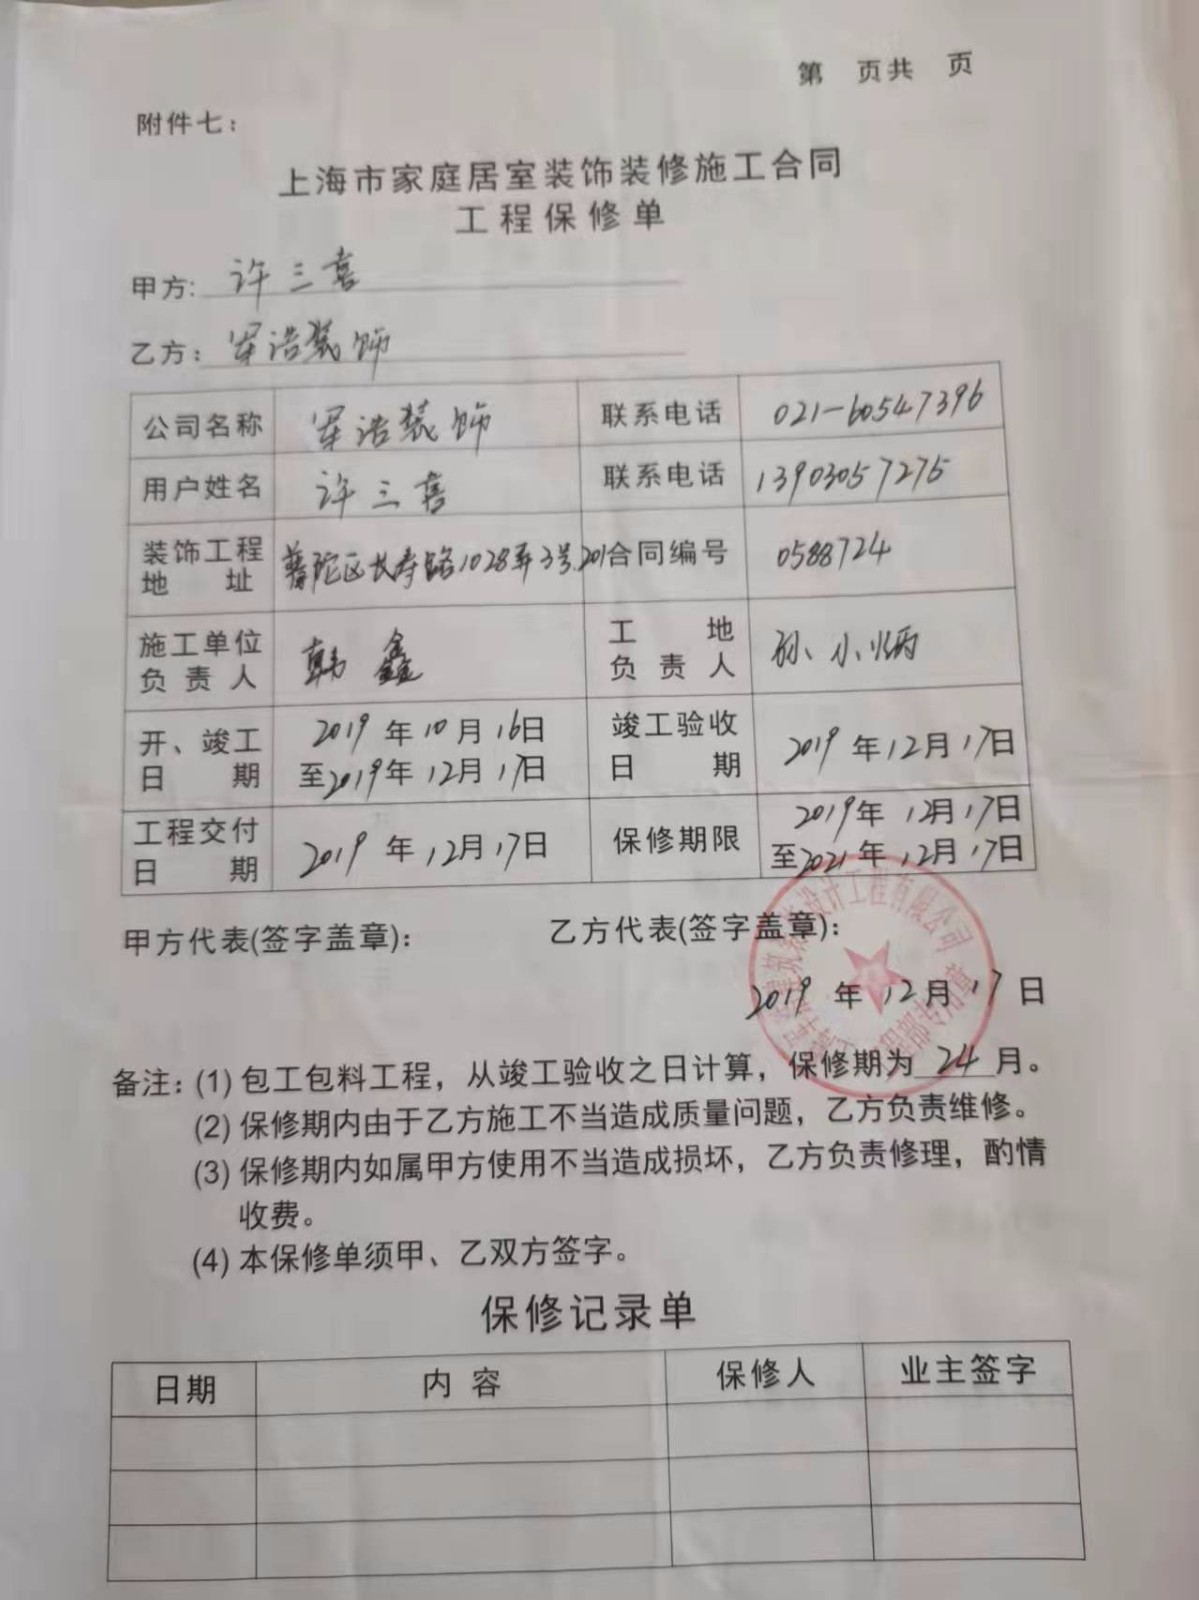 第 页共 页
附件七：
上海市家庭居室装饰装修施工合同
工程保修单
甲方: 许三喜
乙方：军浩装饰
公司名称 军浩装饰 联系电话 021-60547396
用户姓名 许三喜 联系电话 13903057275
装饰工程地址 普陀区长寿路1028弄3号201 合同编号 0588724
施工单位负责人 韩鑫 工地负责人 孙小炳
开、竣工日期 2019年10月16日至2019年12月17日 竣工验收日期 2019年12月17日
工程交付日期 2019年12月17日 保修期限 2019年12月17日至2021年12月17日
甲方代表(签字盖章)： 乙方代表(签字盖章)：
设计工程有限公司
工程部专用章
2019年12月17日
备注：(1) 包工包料工程，从竣工验收之日计算，保修期为 24 月。
(2) 保修期内由于乙方施工不当造成质量问题，乙方负责维修。
(3) 保修期内如属甲方使用不当造成损坏，乙方负责修理，酌情
收费。
(4) 本保修单须甲、乙双方签字。
保修记录单
日期 内容 保修人 业主签字